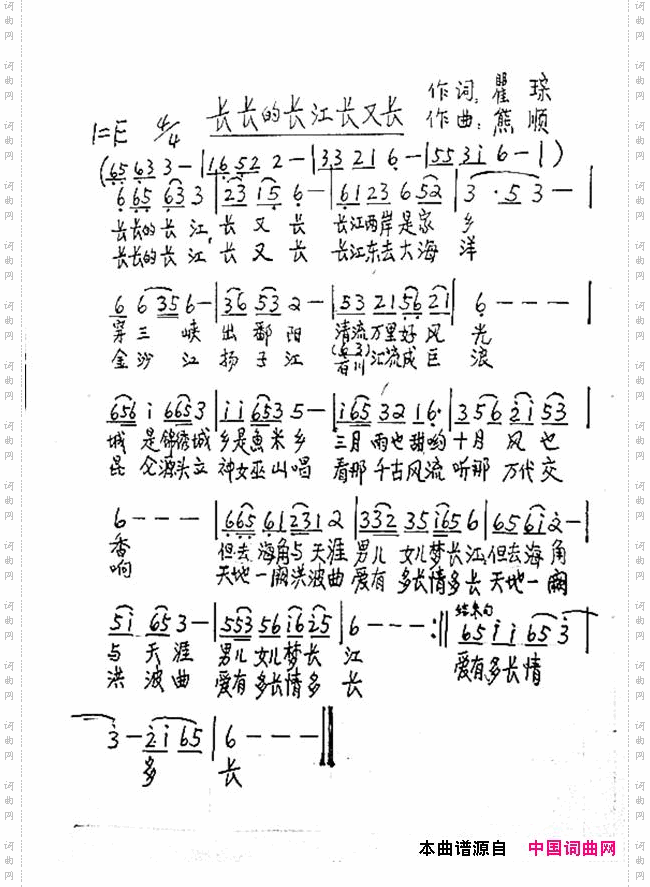 长长的长江长又长
作词:瞿琮
作曲:熊顺
1=E 4/4
(65 63 3 - | 16 52 2 - | 33 21 6 - | 55 3i 6 - | )
6 65 63 3 | 23 15 6 - | 61 23 6 52 | 3 · 5 3 - |
长长的长江,长又长 长江两岸是家乡
长长的长江,长又长 长江东去大海洋
6 6 35 6 - | 36 53 2 - | 53 21 56 21 | 6 - - - |
穿三峡出鄱阳 清流万里好风光
金沙江扬子江 百川汇流成巨浪
656 i 665 3 | i i 653 5 - | i65 32 16· | 356 2i 53 |
城是锦绣城 乡是鱼米乡 三月雨也甜哟十月风也
昆仑源头立 神女巫山唱 看那千古风流听那万代交
6 - - - | 665 61 231 2 | 332 35 i65 6 | 65 6i 2 - |
香 但去海角与天涯 男儿女儿梦长江,但去海角
响 天地一阙洪波曲 爱有多长情多长 天地一阙
5i 65 3 - | 553 56 i6 25 | 6 - - - :‖ 结束句 65 i i 65 3 |
与天涯 男儿女儿梦长江 爱有多长情
洪波曲 爱有多长情多长
3 - 2i 65 | 6 - - - ‖
多长
本曲谱源自 中国词曲网